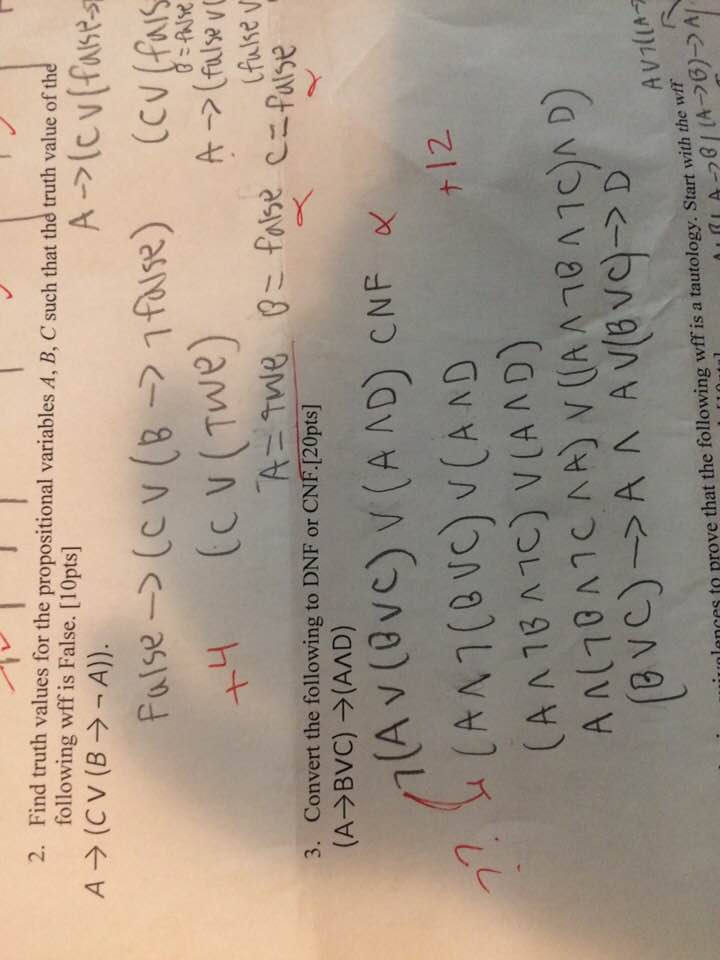 2. Find truth values for the propositional variables A, B, C such that the truth value of the
following wff is False. [10pts]
A → (C ∨ (B → ¬ A)).
A → (C ∨ (false →
False → (C ∨ (B → ¬ false)
(C ∨ (fals
B = false
+4
(C ∨ (True)
A → (false ∨ (
(false ∨
A = True B = false C = false
3. Convert the following to DNF or CNF.[20pts]
(A→B∨C) →(A∧D)
¬(A ∨ (B ∨ C) ∨ (A ∧ D) CNF
+12
?? (A ∧ ¬ (B ∨ C) ∨ (A ∧ D
(A ∧ ¬B ∧ ¬C) ∨ (A ∧ D)
A ∧ (¬B ∧ ¬C ∧ A) ∨ ((A ∧ ¬B ∧ ¬C) ∧ D)
(B ∨ C) → A ∧ A ∨ (B ∨ C) → D
A ∨ ¬((A →
to prove that the following wff is a tautology. Start with the wff
A → B) (A → B) → A